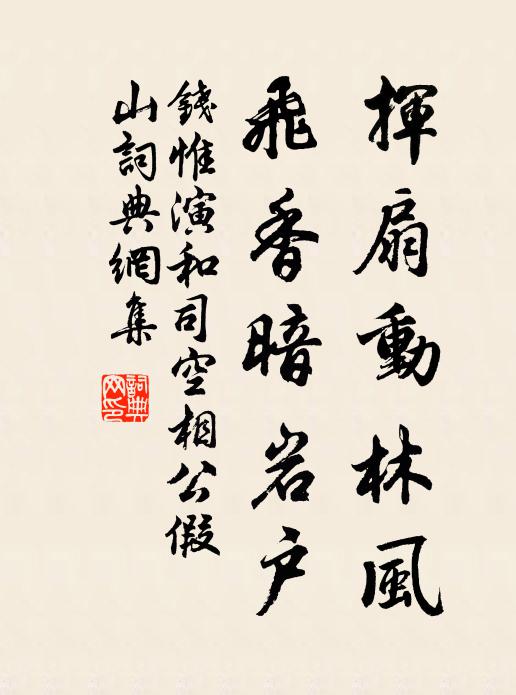 揮扇動林風
飛香暗岩户
錢惟演和司空相公假
山詞典網集
詞典
网印